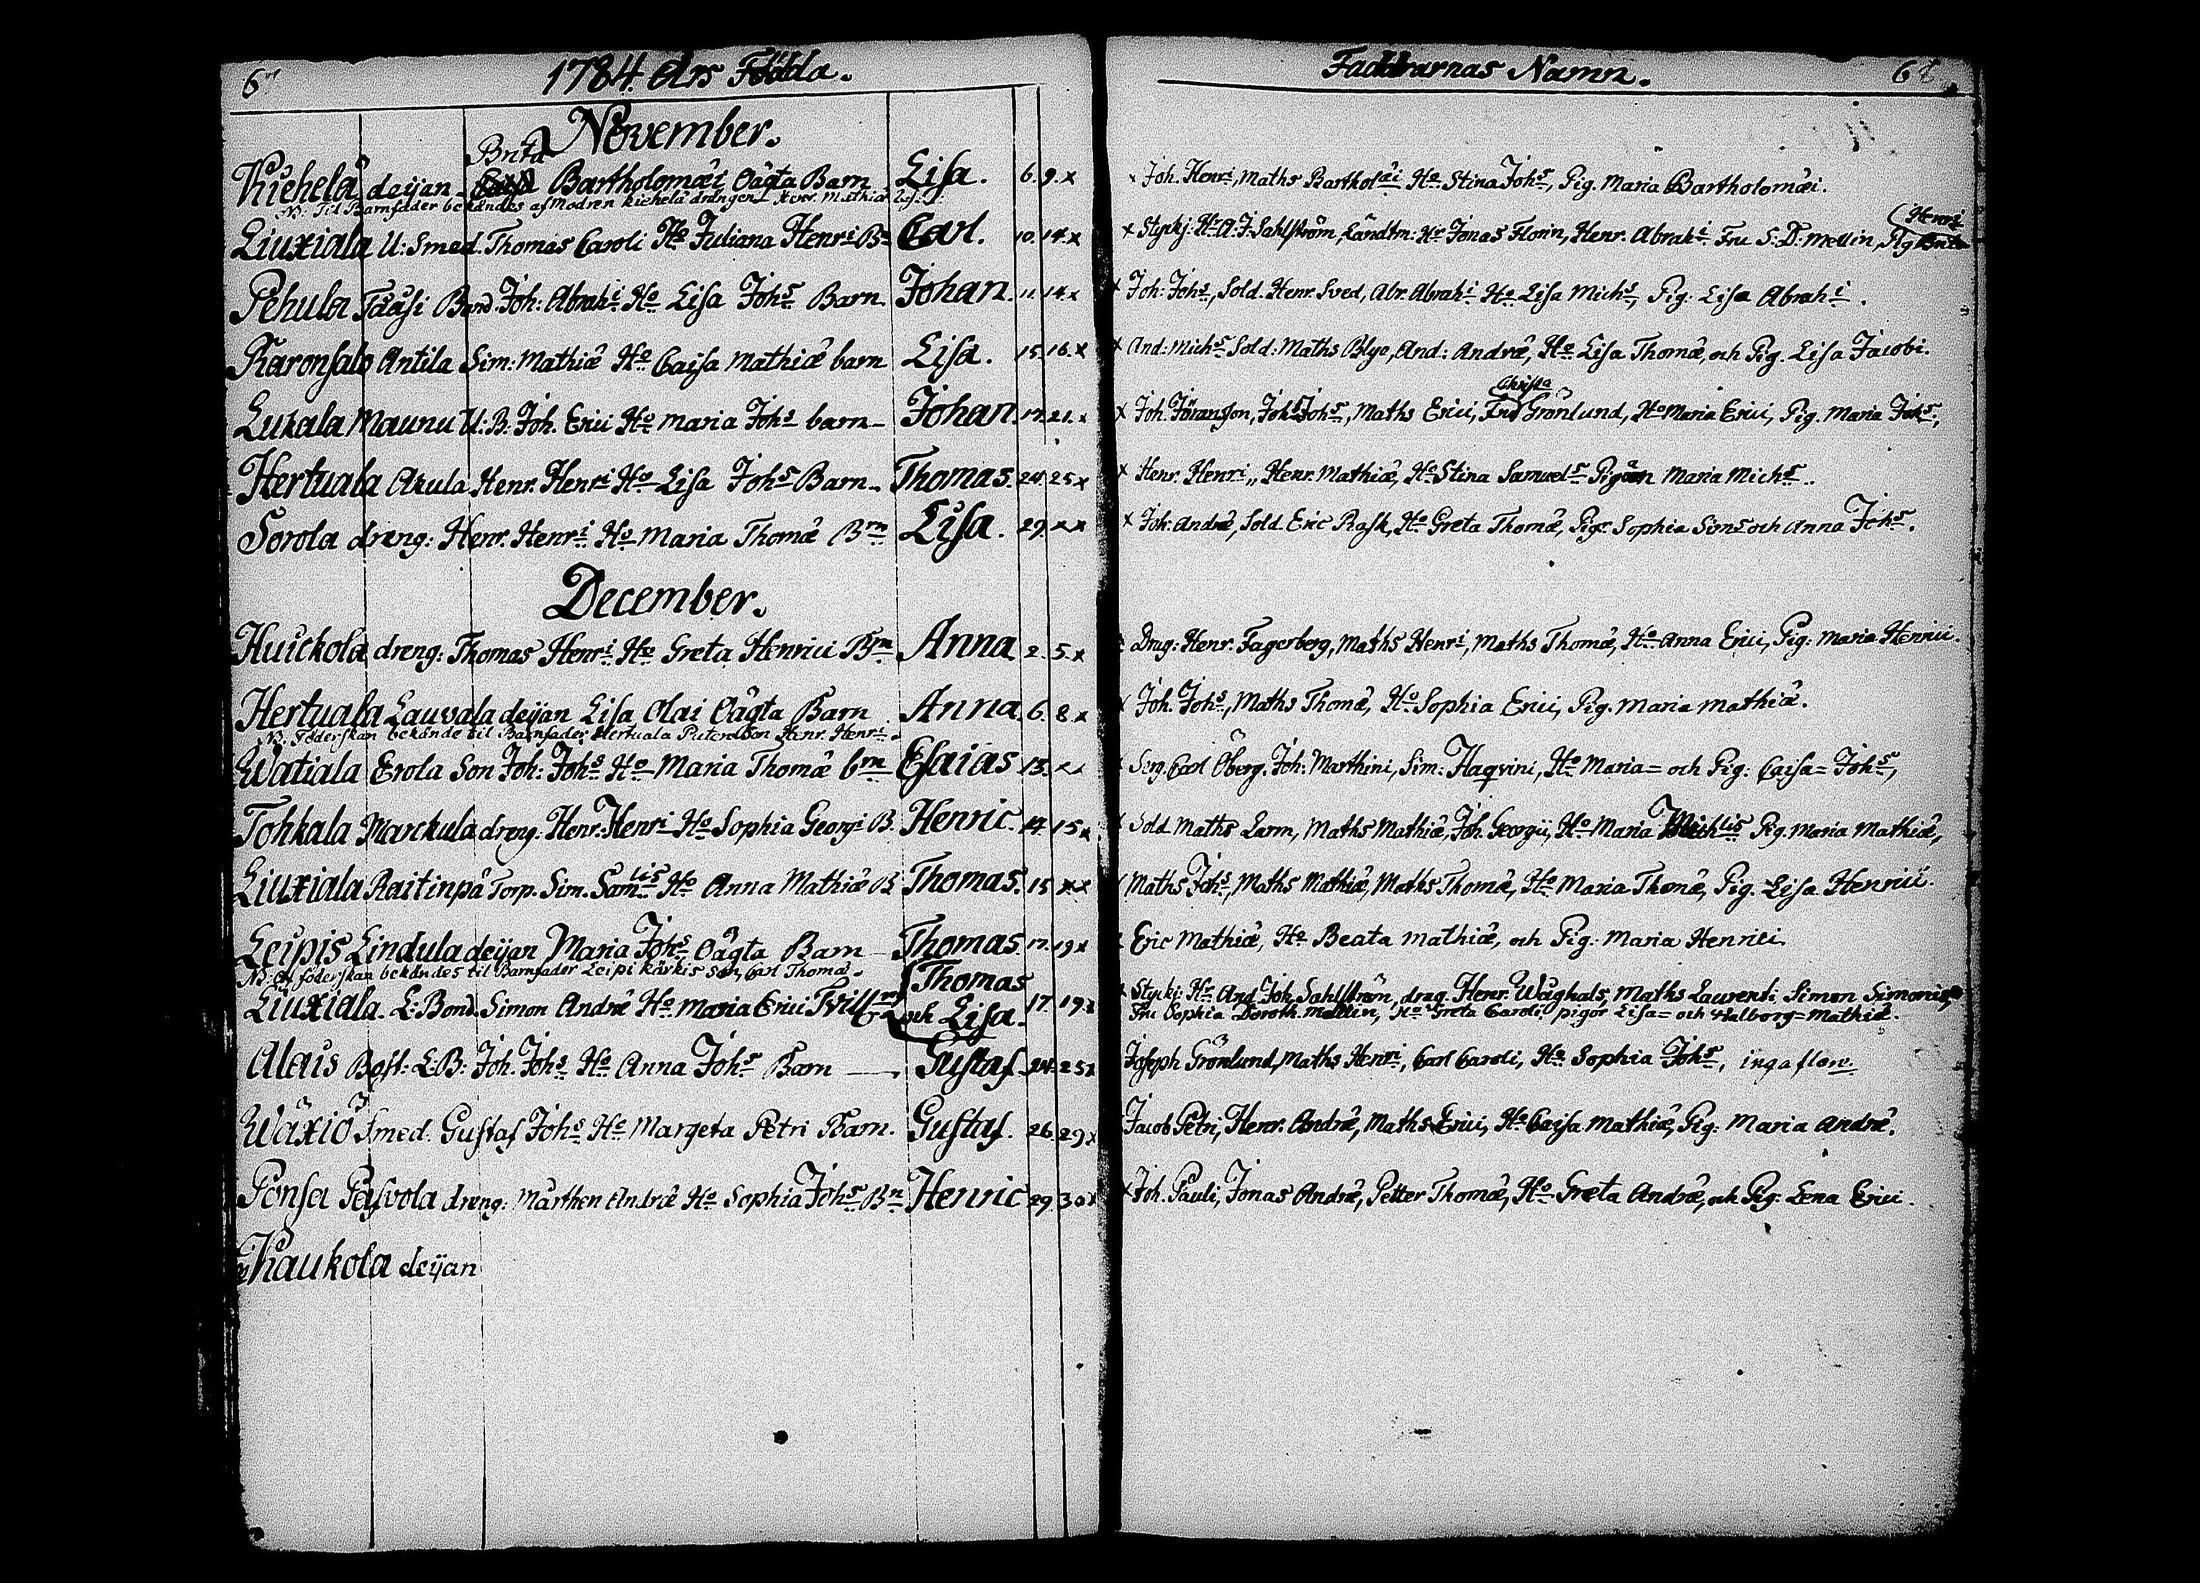 67
1784 Års Födda.
November.
Brita
Kiehelä deijan Bartholomæi Oägta Barn Lisa. 6. 9. x
NB. Til Barnfader bekändes af Modren Kiehelä drängen Henr. Mathiæ
Liuxiala U: Smed. Thomas Caroli Ho Juliana Henri Bn Carl. 10. 14. x
Pehula Tååsi Bond. Joh: Abrahi Ho Lisa Johs Barn Johan. 11. 14. x
Raronsalo Antila Sim: Mathiæ Ho Caisa Mathiæ barn Lisa. 15. 16. x
Lukala Maunu U: B. Joh. Erici Ho Maria Johs barn Johan. 17. 21. x
Hertuala Akula Henr. Henri Ho Lisa Johs Barn Thomas. 24. 25 x
Sorola dreng: Henr. Henri Ho Maria Thomæ Brn Lisa. 29. x x
December.
Huickola dreng: Thomas Henri Ho Greta Henrici Brn Anna 2. 5. x
Hertuala Lauvala deijan Lisa Olai Oägta Barn Anna. 6. 8 x
NB. Föderskan bekände til Barnfader Hertuala Henr. Henri.
Watiala Erola Son Joh: Johs Ho Maria Thomæ brn Esaias 13. x x
Tohkala Marckula dreng. Henr. Henri Ho Sophia Georgi B. Henric. 14. 15 x
Liuxiala Raitinpä Torp. Sim. Samlis Ho Anna Mathiæ B Thomas. 15 x x
Leipis Lindula deijan Maria Johs Oägta Barn Thomas. 17. 19 x
NB. Af föderskan bekändes til Barnfader Leipi Kärkis Son, Carl Thomæ.
Liuxiala. L: Bond. Simon Andræ Ho Maria Erici Tvill Thomas och Lisa. 17. 19. x
Alais Bost: L: B: Joh. Johs Ho Anna Johs Barn Gustaf 24. 25 x
Wäxiö Smed. Gustaf Johs Ho Margeta Petri Barn. Gustaf. 26. 29 x
Ponsa Pasvola dreng: Mårthen Andræ Ho Sophia Johs Bn Henric 29. 30 x
Kaukola deijan
Faddrarnas Namn. 68
x Joh. Henri, Maths Bartholæi Ho Stina Johs, Pig. Maria Bartholomæi.
x Styckj: Hr A. J: Sahlström, Ländtm: Hr Jonas Florin, Henr. Abrahi Fru S: D: Mellin, Pig Brita Henri
x Joh: Johs, Sold. Henr. Sved, Abr. Abrahi Ho Lisa Michs, Pig: Lisa Abrahi.
x And: Michs Sold: Maths Blye, And: Andræ, Ho Lisa Thomæ, och Pig. Lisa Jacobi.
x Joh. Jöransson, Johs Johs, Maths Erici, Christa Grönlund, Ho Maria Erici, Pig. Maria Johs,
x Henr. Henri, Henr. Mathiæ, Ho Stina Samuels Pigan Maria Michs.
x Joh. Andræ, Sold. Eric Rask, Ho Greta Thomæ, Pigr Sophia Sims och Anna Johs.
Drag: Henr. Fagerberg, Maths Henri, Maths Thomæ, Ho Anna Erici, Pig: Maria Henrici.
x Joh. Johs, Maths Thomæ, Ho Sophia Erici, Pig. Maria Mathiæ.
Serg. Carl Öberg. Joh: Marthini, Sim: Haqvini, Ho Maria= och Pig: Caisa= Johs,
x Sold Maths Larm, Maths Mathiæ, Joh. Georgii, Ho Maria Michlis Pig. Maria Mathiæ,
x Maths Johs, Maths Mathiæ, Maths Thomæ, Ho Maria Thomæ, Pig. Lisa Henrici.
x Eric Mathiæ, Ho Beata Mathiæ, och Pig: Maria Henrici.
x Styckj: Hr And: Joh. Sahlström, drag. Henr. Wåghals, Maths Laurenti, Simon Simonis,
Fru Sophia Doroth. Mellin, Ho Greta Caroli, pigor Lisa= och Walborg= Mathiæ.
Joseph Grönlund, Maths Henri, Carl Caroli, Ho Sophia Johs, inga flere.
Jacob Petri, Henr. Andræ, Maths Erici, Ho Caisa Mathiæ, Pig: Maria Andræ.
x Joh. Pauli, Jonas Andræ, Petter Thomæ, Ho Greta Andræ, och Pig: Lena Erici.